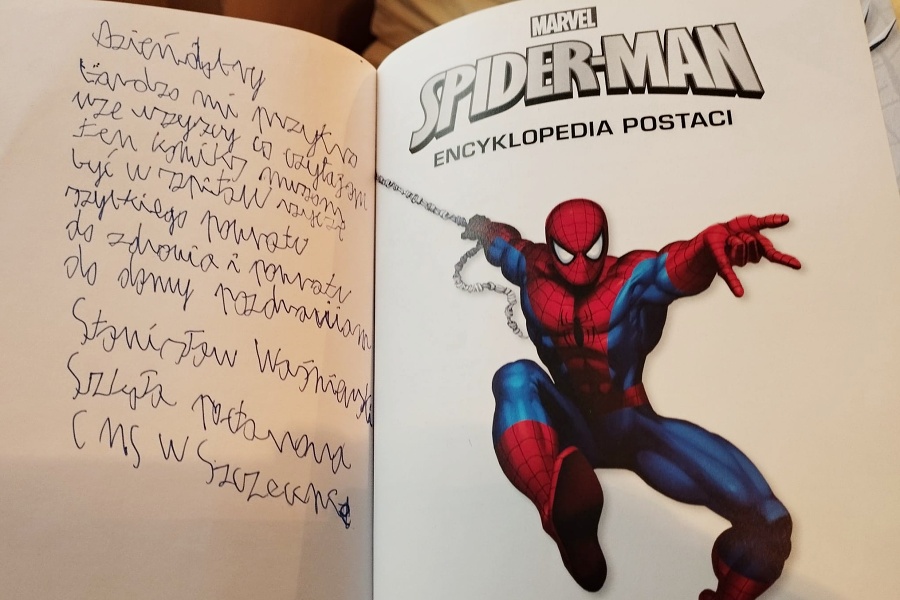 Dzień dobry
bardzo mi przykro
wze wrzyscy co czytazem
ten komiks muszom
być w szpitalu rzyczę
szytkiego powrotu
do zdrowia i powrotu
do domy pozdrawiam
Stanisław Waśniewski
Szkoła postanowa
CMS W Szczecinie
MARVEL
SPIDER-MAN
ENCYKLOPEDIA POSTACI